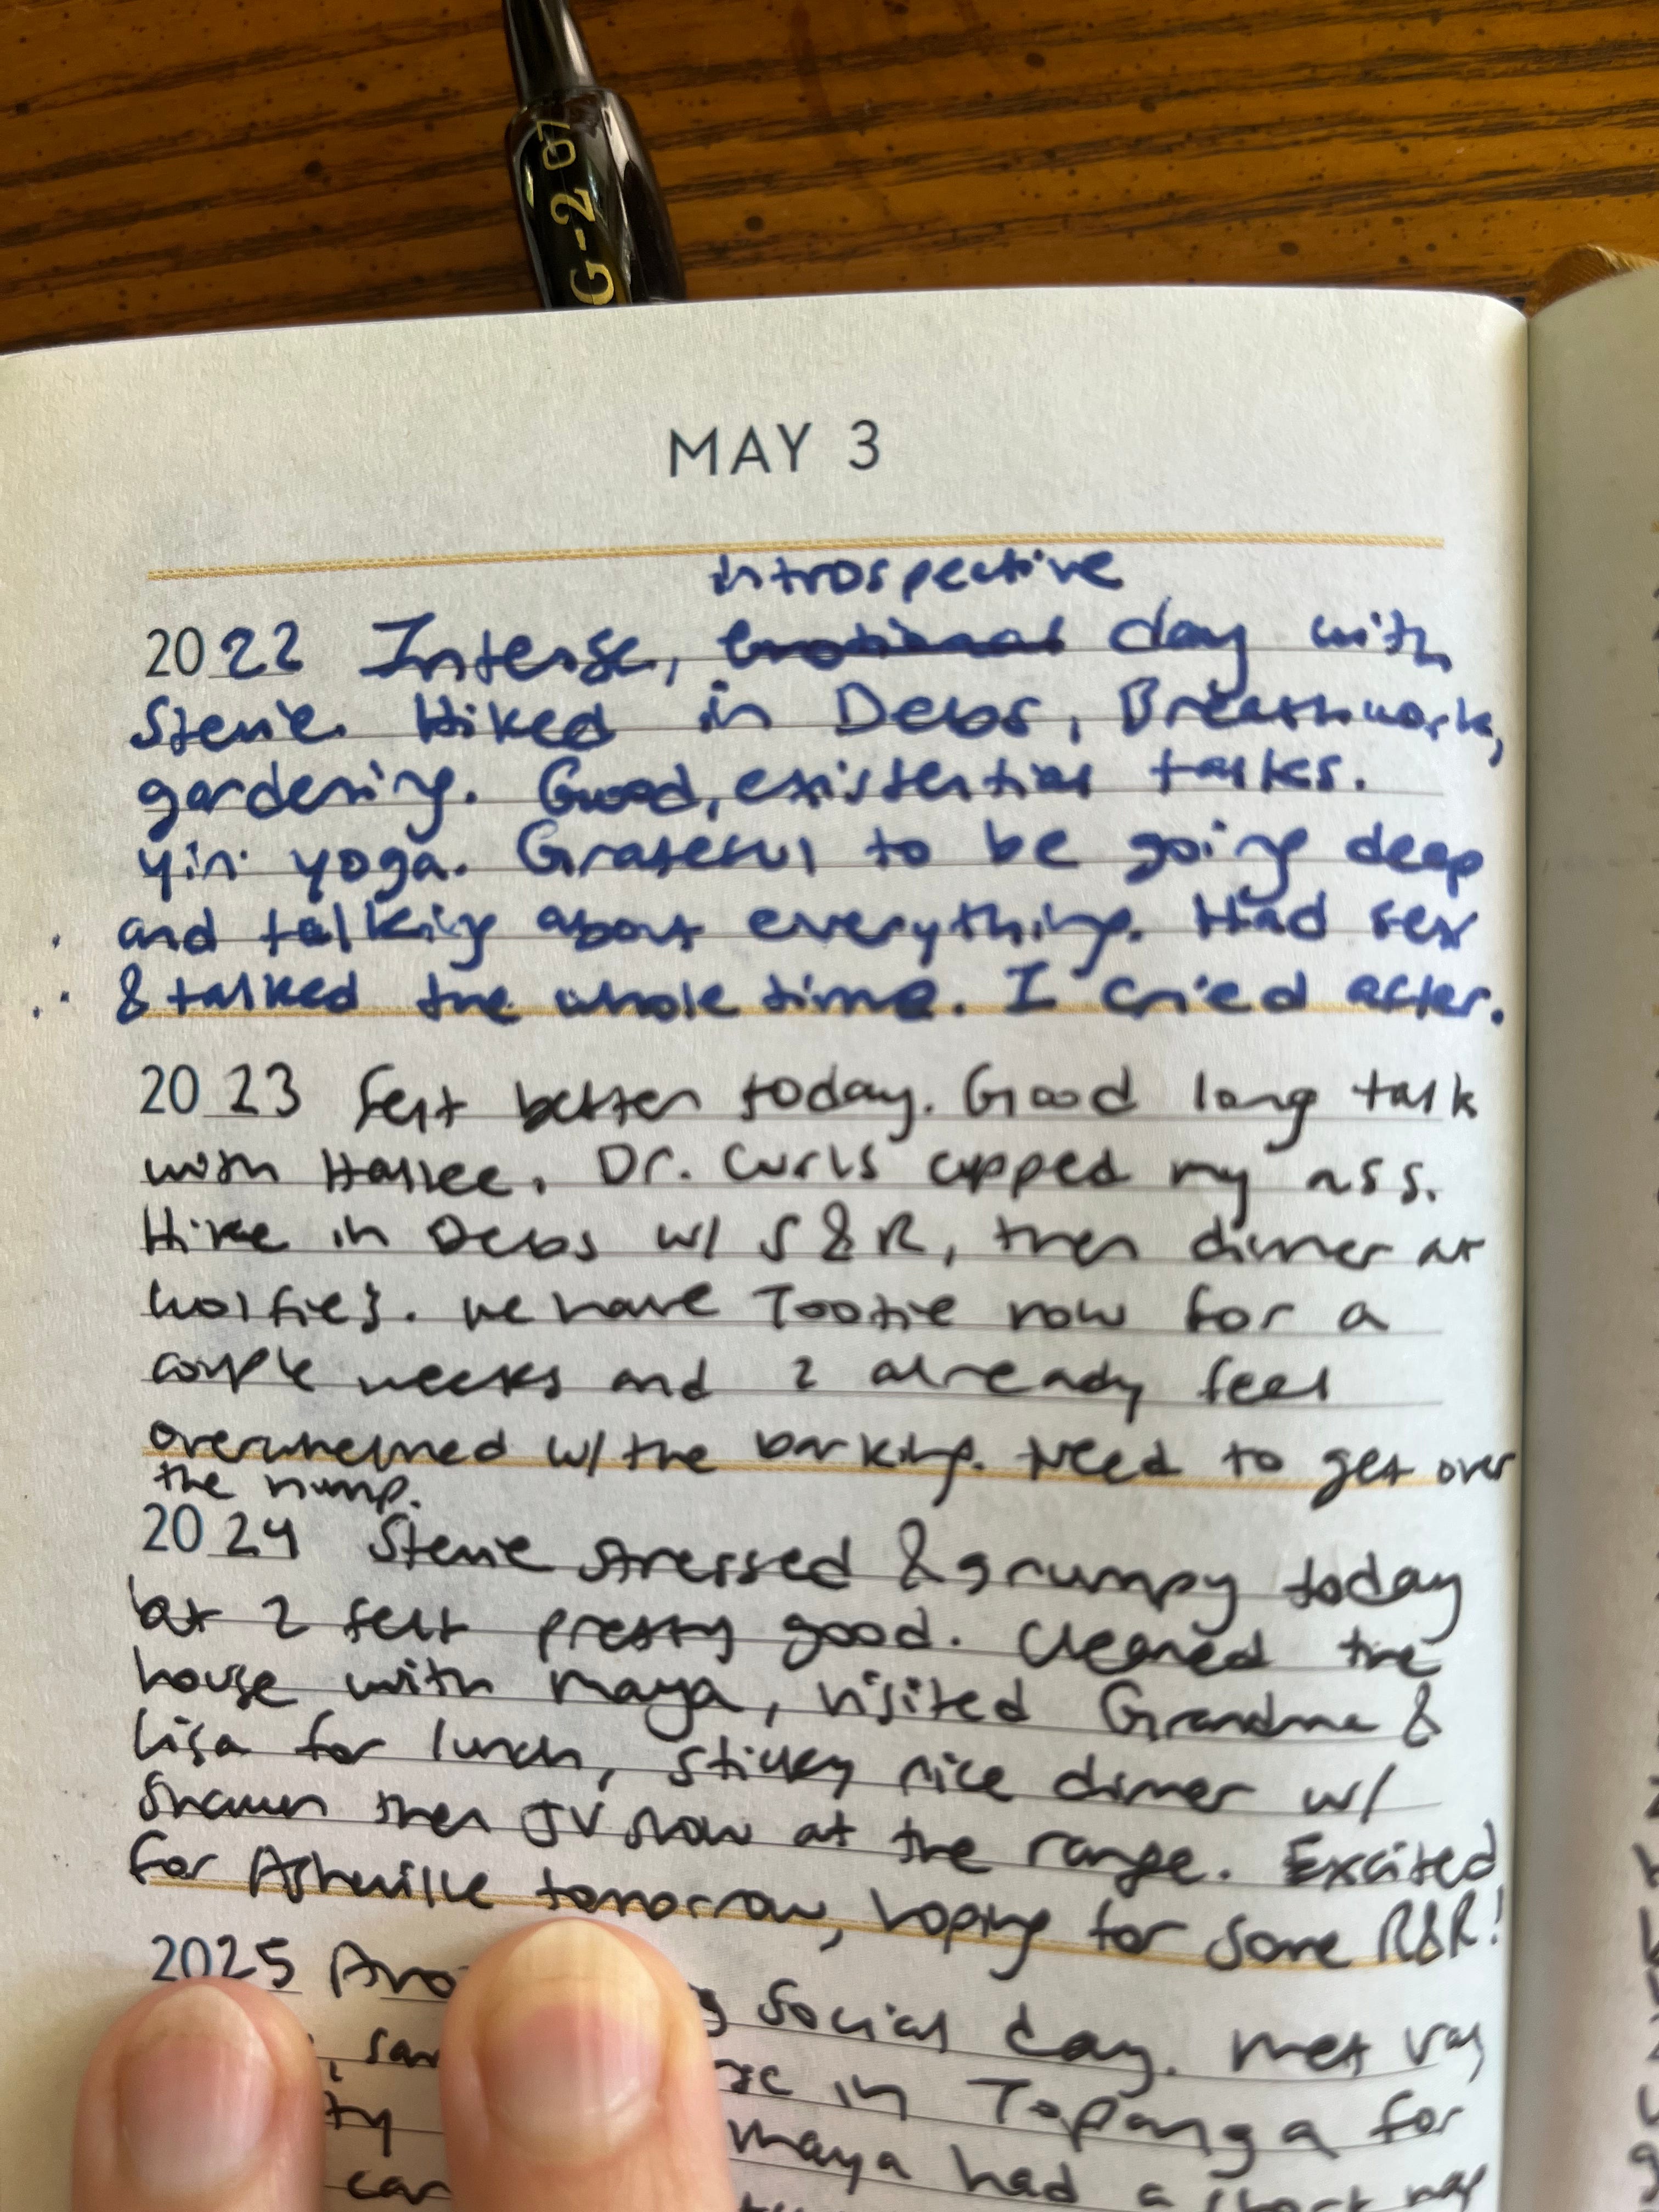 G-2 07
MAY 3
introspective
2022 Intense, emotional day with
Stevie. Hiked in Debs, Breathwork,
gardening. Good, existential talks.
yin yoga. Grateful to be going deep
and talking about everything. Had sex
& talked the whole time. I cried after.
2023 Felt better today. Good long talk
with Hallee. Dr. Curls cupped my ass.
Hike in Debs w/ S & R, then dinner at
Wolfies. We have Tootie now for a
couple weeks and I already feel
overwhelmed w/ the barking. Need to get over
the hump.
2024 Stevie stressed & grumpy today
but I felt pretty good. Cleaned the
house with Maya, visited Grandma &
Lisa for lunch, sticky rice dinner w/
Shawn then JV show at the range. Excited
for Asheville tomorrow, hoping for some R&R!
2025 social day. Met Val
in Topanga for
Maya had a short